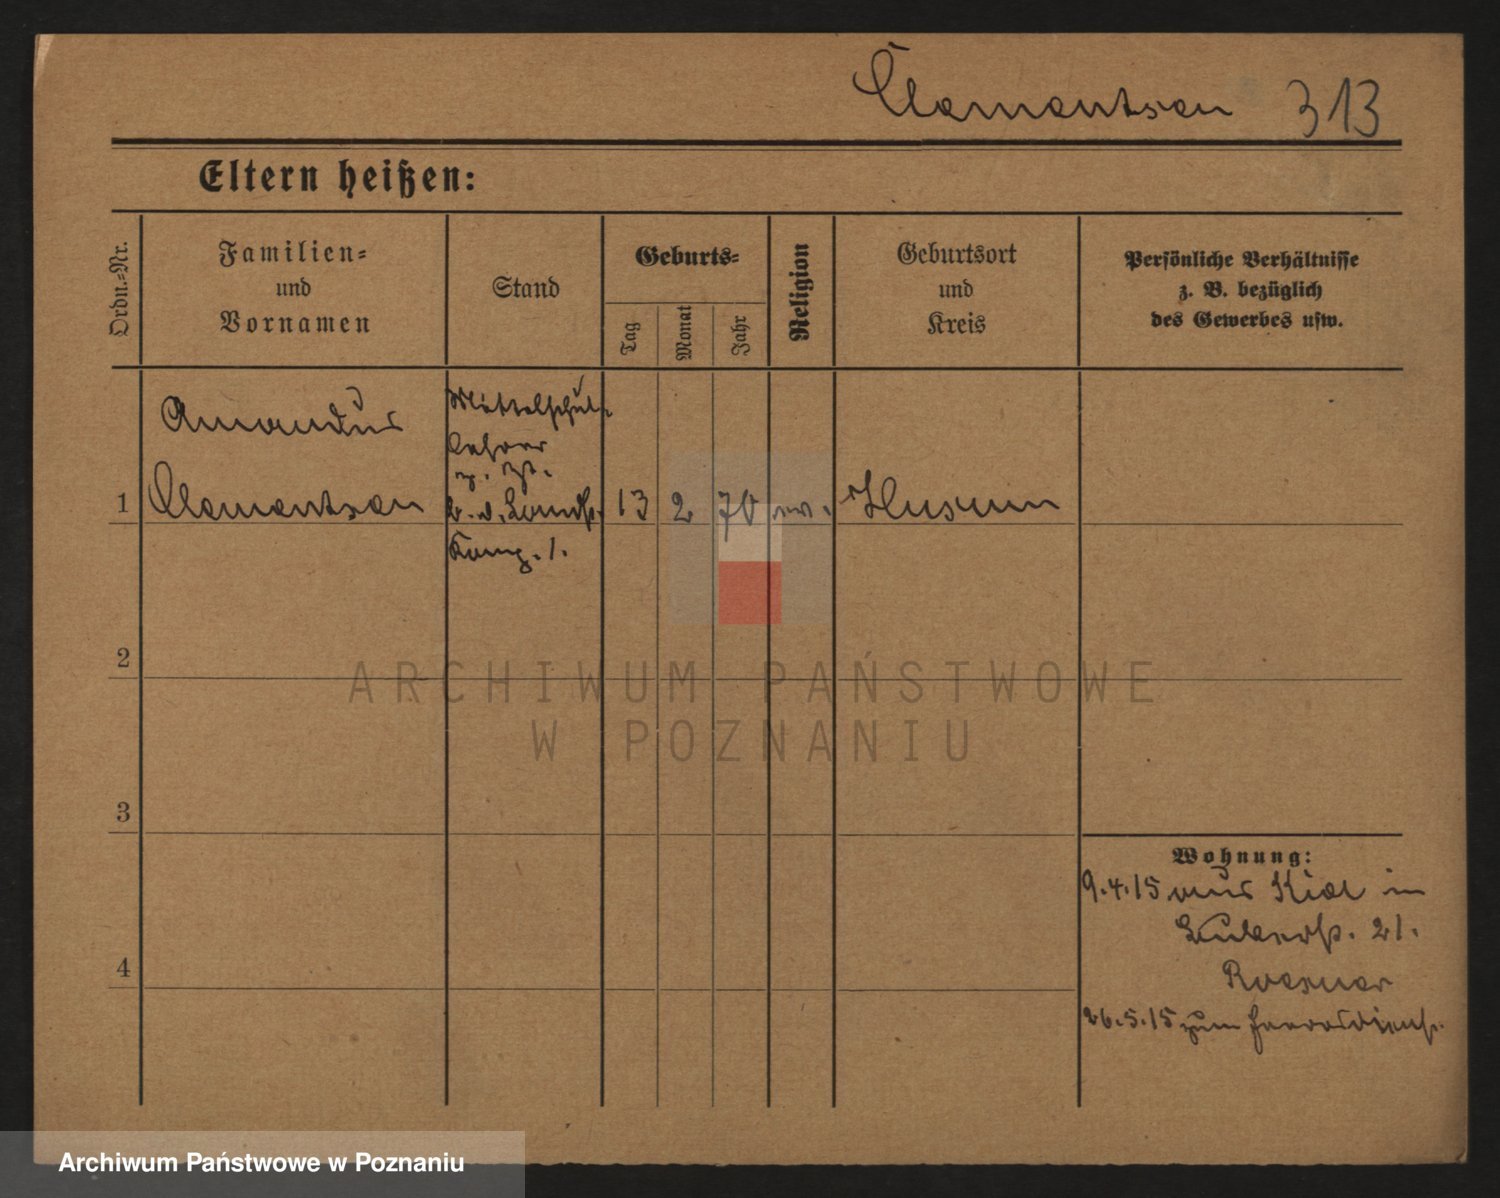 Clementsen 313
Eltern heißen:
Ordn.-Nr.
Familien-
und
Vornamen
Stand
Geburts-
Tag
Monat
Jahr
Religion
Geburtsort
und
Kreis
Persönliche Verhältnisse
z. B. bezüglich
des Gewerbes usw.
Amandus
1 Clementsen
Mittelschul-
lehrer
z. Zt.
b. d. Landst.
Komp. 1.
13 2 70 ev. Husum
2
3
4
Wohnung:
9.4.15 aus Kiel in
21.
Roesner
26.5.15 zum Heeresdienst
ARCHIWUM PAŃSTWOWE
W POZNANIU
Archiwum Państwowe w Poznaniu